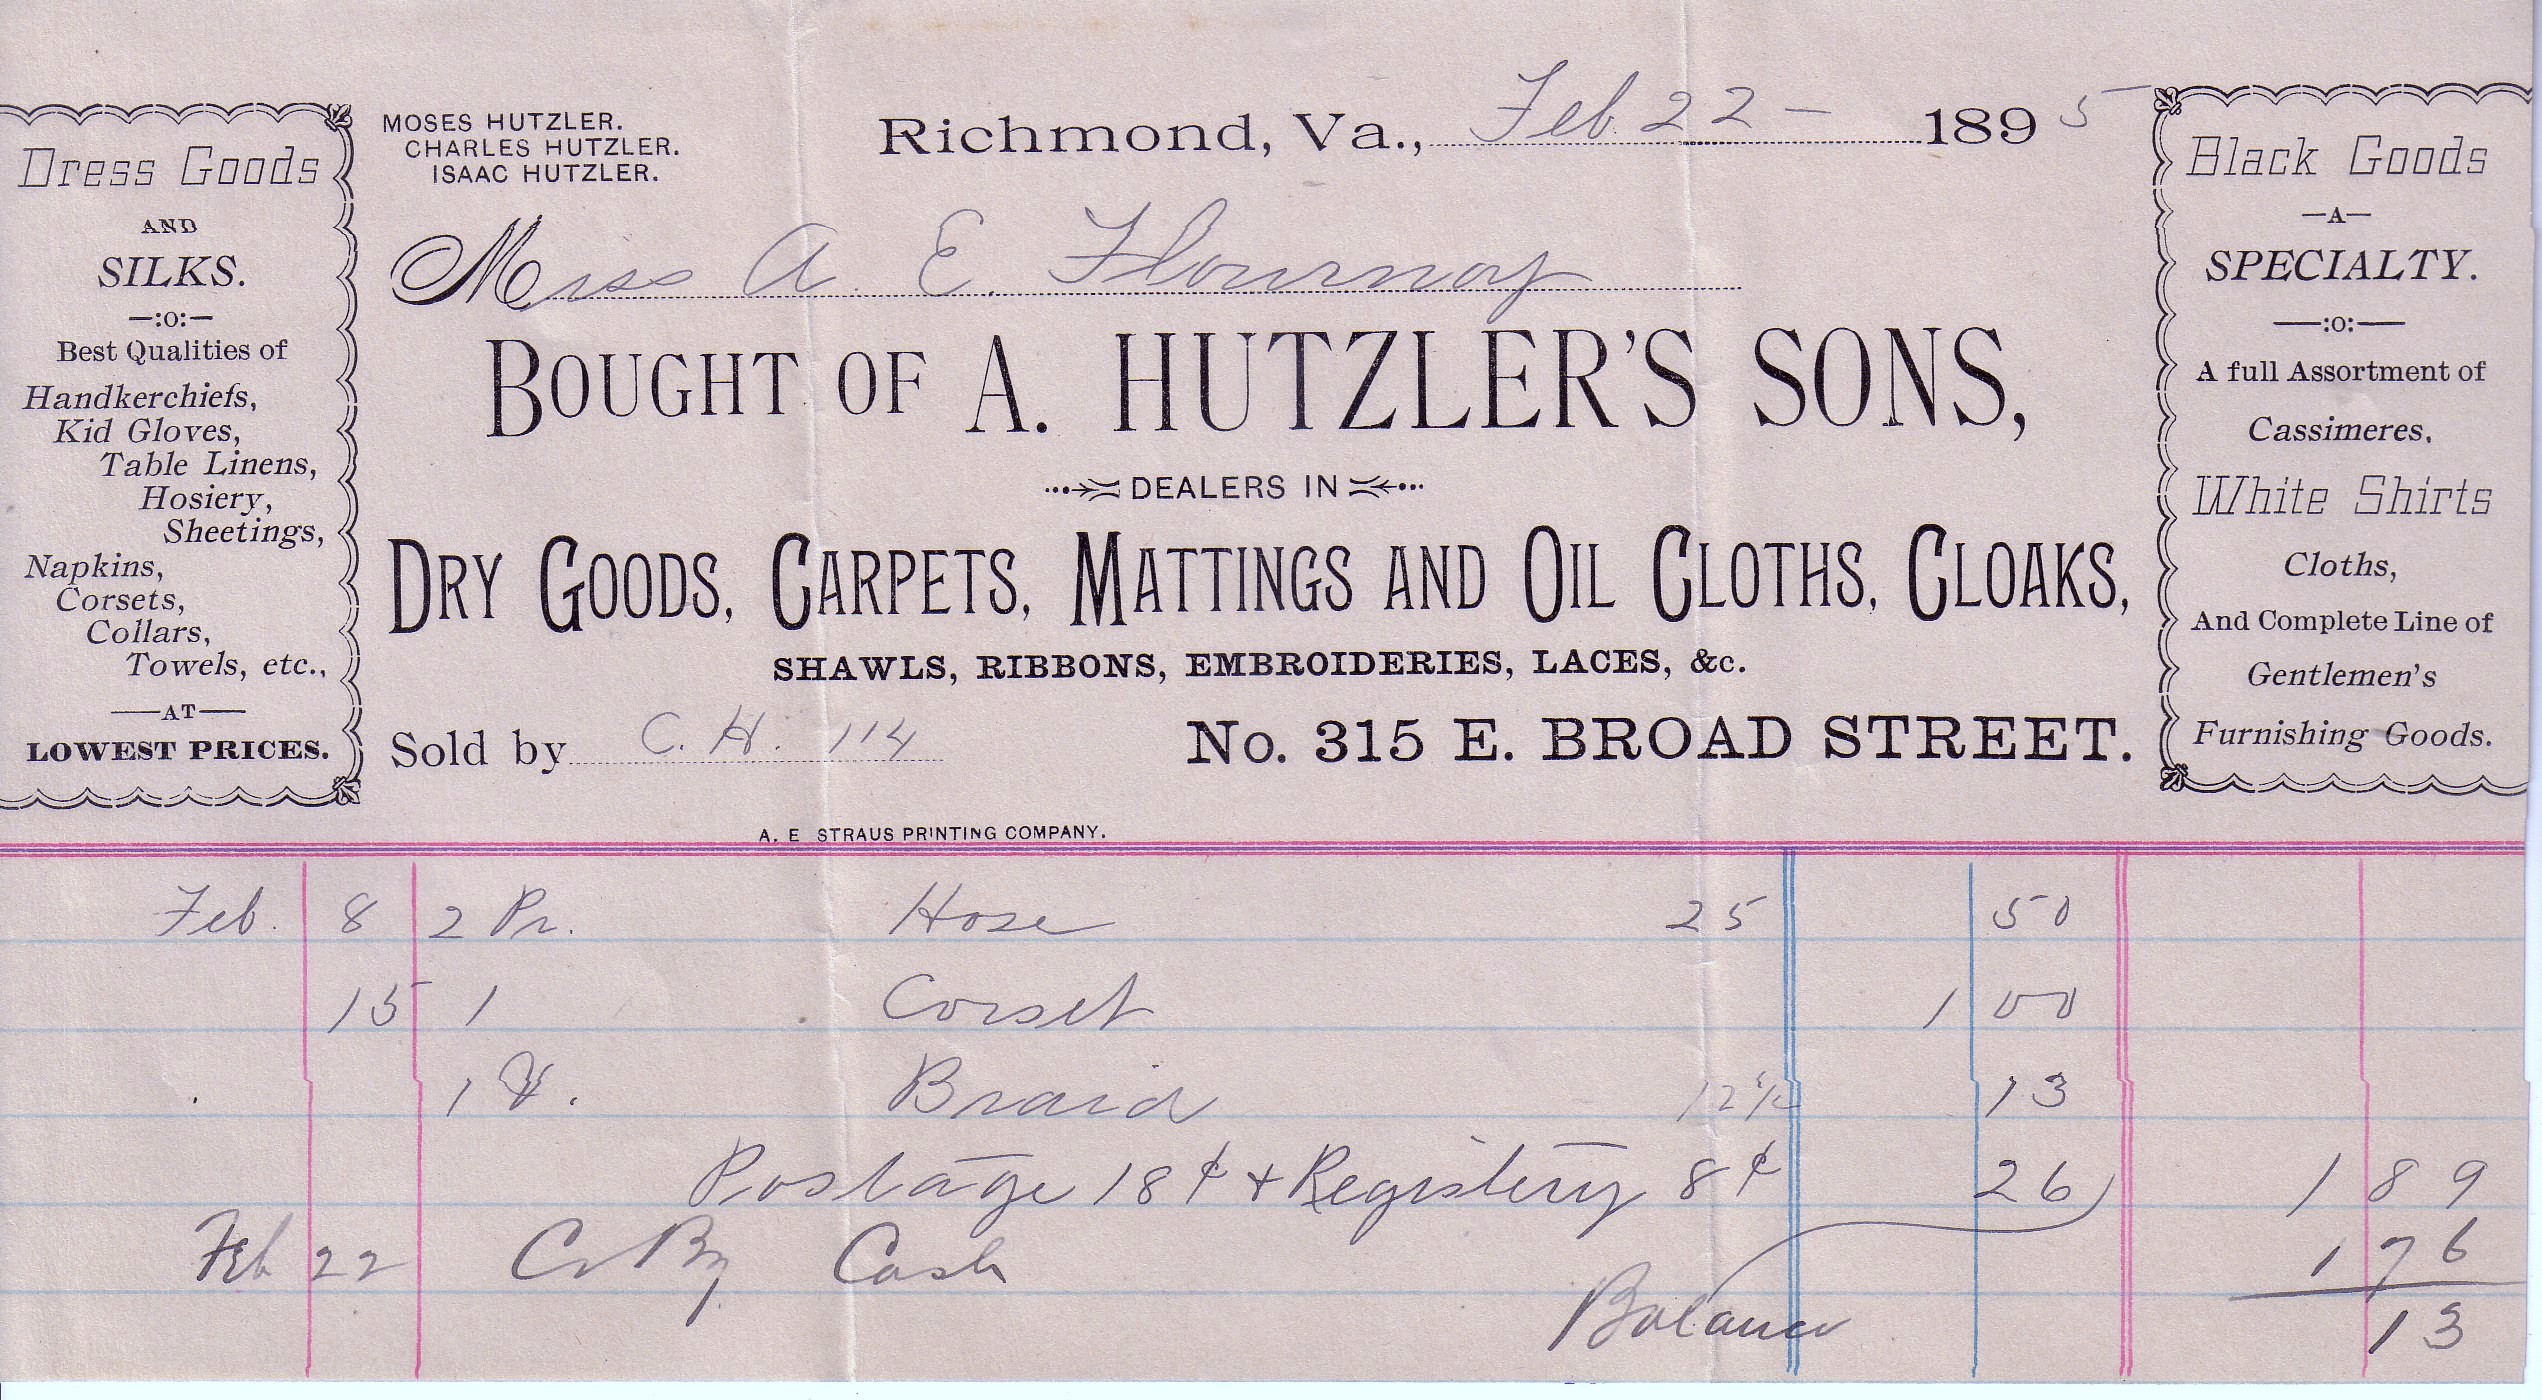 Dress Goods
AND
SILKS.
—:o:—
Best Qualities of
Handkerchiefs,
Kid Gloves,
Table Linens,
Hosiery,
Sheetings,
Napkins,
Corsets,
Collars,
Towels, etc.,
—AT—
LOWEST PRICES.
MOSES HUTZLER.
CHARLES HUTZLER.
ISAAC HUTZLER.
Richmond, Va., Feb. 22 — 1895
Miss A. E. Flournoy
BOUGHT OF A. HUTZLER'S SONS,
DEALERS IN
DRY GOODS, CARPETS, MATTINGS AND OIL CLOTHS, CLOAKS,
SHAWLS, RIBBONS, EMBROIDERIES, LACES, &c.
Sold by C. H. 114
No. 315 E. BROAD STREET.
A. E STRAUS PRINTING COMPANY.
Black Goods
—A—
SPECIALTY.
—:o:—
A full Assortment of
Cassimeres,
White Shirts
Cloths,
And Complete Line of
Gentlemen's
Furnishing Goods.
Feb. 8 2 Pr. Hose 25 50
15 1 Corset 1 00
1 Braid 12½ 13
Postage 18¢ + Registery 8¢ 26 1 89
Feb 22 Cr By Cash 1 76
Balance 13